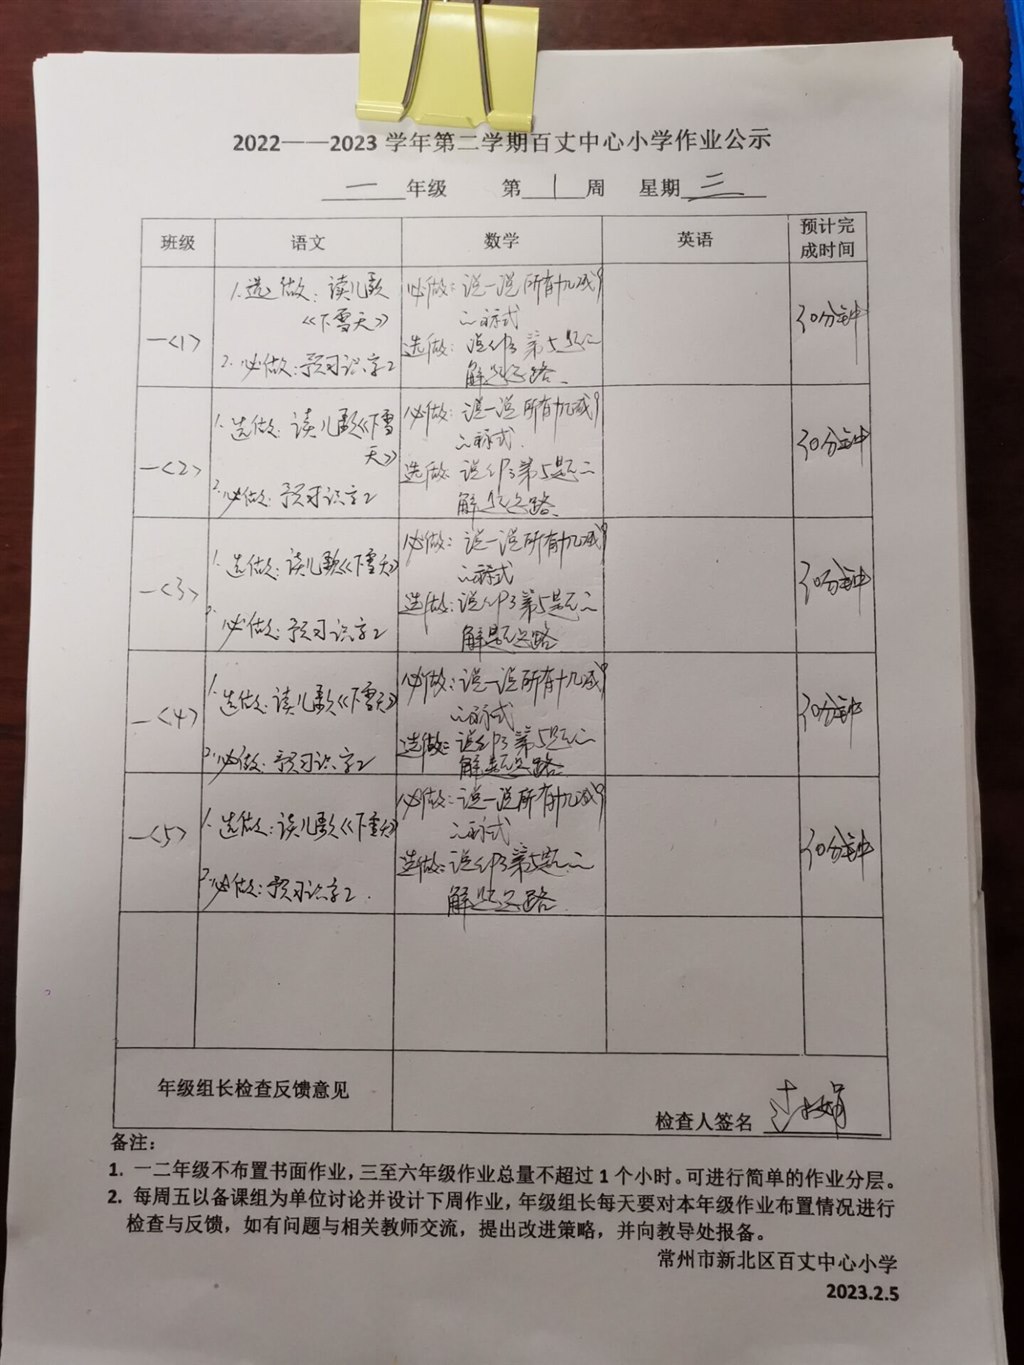 2022——2023 学年第二学期百丈中心小学作业公示
一 年级 第 1 周 星期 三
班级 语文 数学 英语 预计完
成时间
一<1>
1.选做：读儿歌
《下雪天》
2.必做：预习识字2
必做：说一说所有十几减9
的算式
选做：说说P3第5题的
解题思路.
30分钟
一<2>
1.选做：读儿歌《下雪
天》
2.必做：预习识字2
必做：说一说所有十几减9
的算式.
选做：说说P3第5题的
解题思路.
30分钟
一<3>
1.选做：读儿歌《下雪天》
2.必做：预习识字2
必做：说一说所有十几减9
的算式
选做：说说P3第5题的
解题思路
30分钟
一<4>
1.选做：读儿歌《下雪天》
2.必做：预习识字2
必做：说一说所有十几减9
的算式
选做：说说P3第5题的
解题思路
30分钟
一<5>
1.选做：读儿歌《下雪天》
2.必做：预习识字2.
必做：说一说所有十几减9
的算式
选做：说说P3第5题的
解题思路.
30分钟
年级组长检查反馈意见
检查人签名
备注：
1. 一二年级不布置书面作业，三至六年级作业总量不超过 1 个小时。可进行简单的作业分层。
2. 每周五以备课组为单位讨论并设计下周作业，年级组长每天要对本年级作业布置情况进行
检查与反馈，如有问题与相关教师交流，提出改进策略，并向教导处报备。
常州市新北区百丈中心小学
2023.2.5